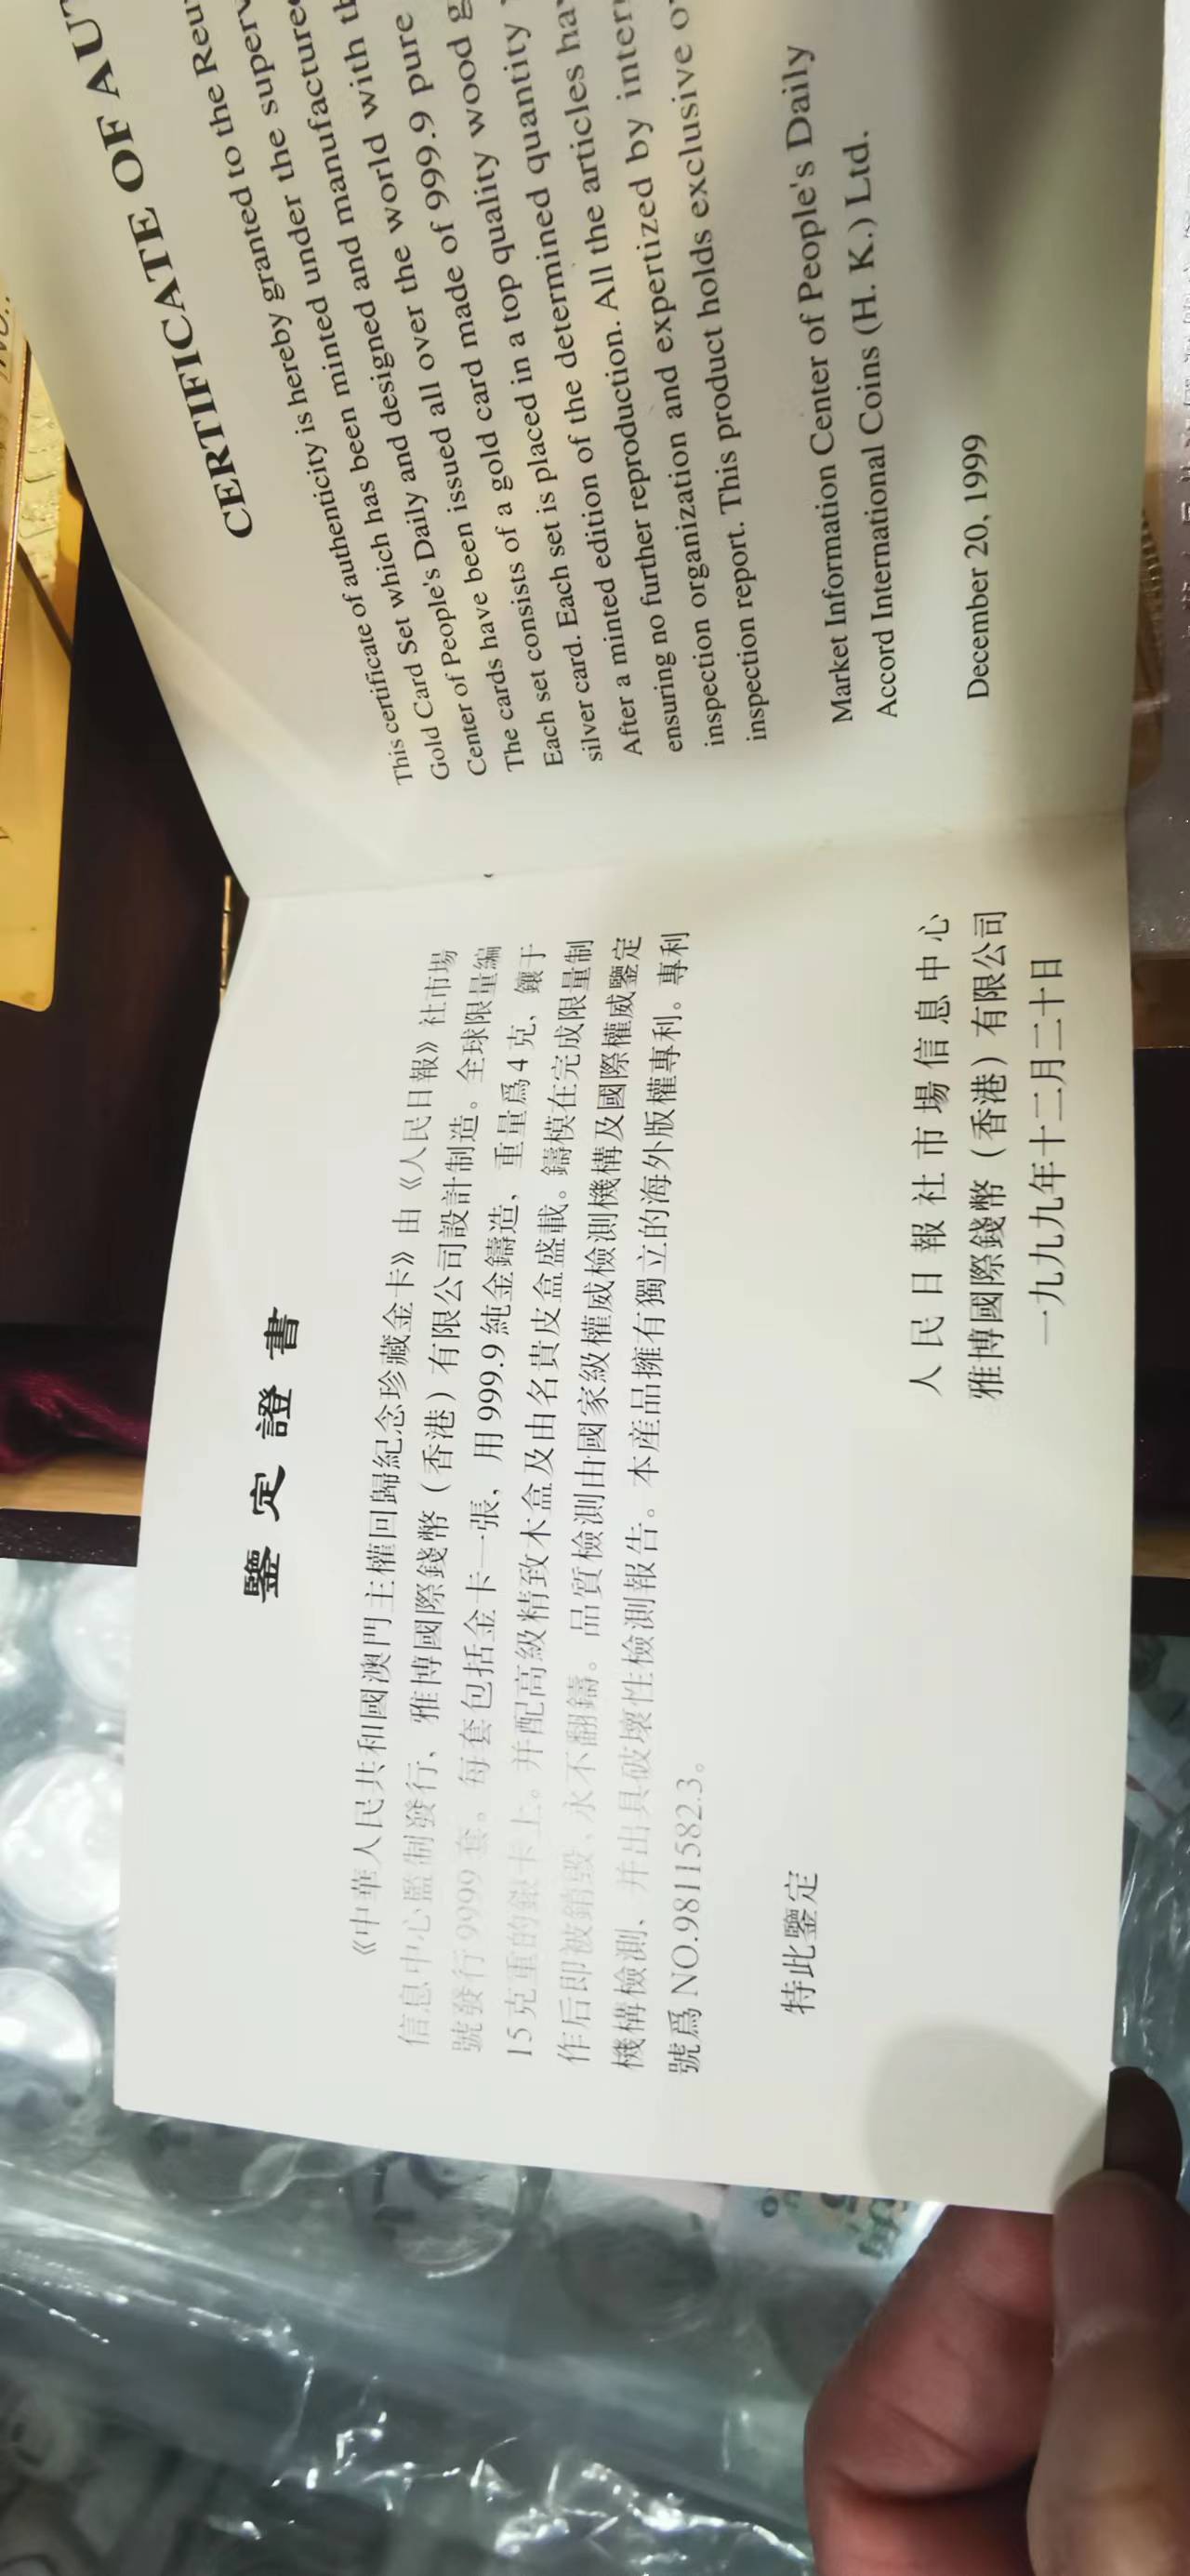 鑒定證書
《中華人民共和國澳門主權回歸紀念珍藏金卡》由《人民日報》社市場
信息中心監制發行、雅博國際錢幣（香港）有限公司設計制造。全球限量編
號發行9999套。每套包括金卡一張，用999.9純金鑄造，重量爲4克，鑲于
15克重的銀卡上。并配高級精致木盒及由名貴皮盒盛載。鑄模在完成限量制
作后即被銷毀，永不翻鑄。品質檢測由國家級權威檢測機構及國際權威鑒定
機構檢測、并出具破壞性檢測報告。本産品擁有獨立的海外版權專利。專利
號爲NO.9811582.3。
特此鑒定
人民日報社市場信息中心
雅博國際錢幣（香港）有限公司
一九九九年十二月二十日
CERTIFICATE OF
This certificate of authenticity is hereby granted to the
Gold Card Set which has been minted under the
Center of People's Daily and designed and manufactured
The cards have been issued all over the world with
Each set consists of a gold card made of 999.9 pure
silver card. Each set is placed in a top quality wood
After a minted edition of the determined quantity
ensuring no further reproduction. All the articles
inspection organization and expertized by
inspection report. This product holds exclusive
Market Information Center of People's Daily
Accord International Coins (H. K.) Ltd.
December 20, 1999